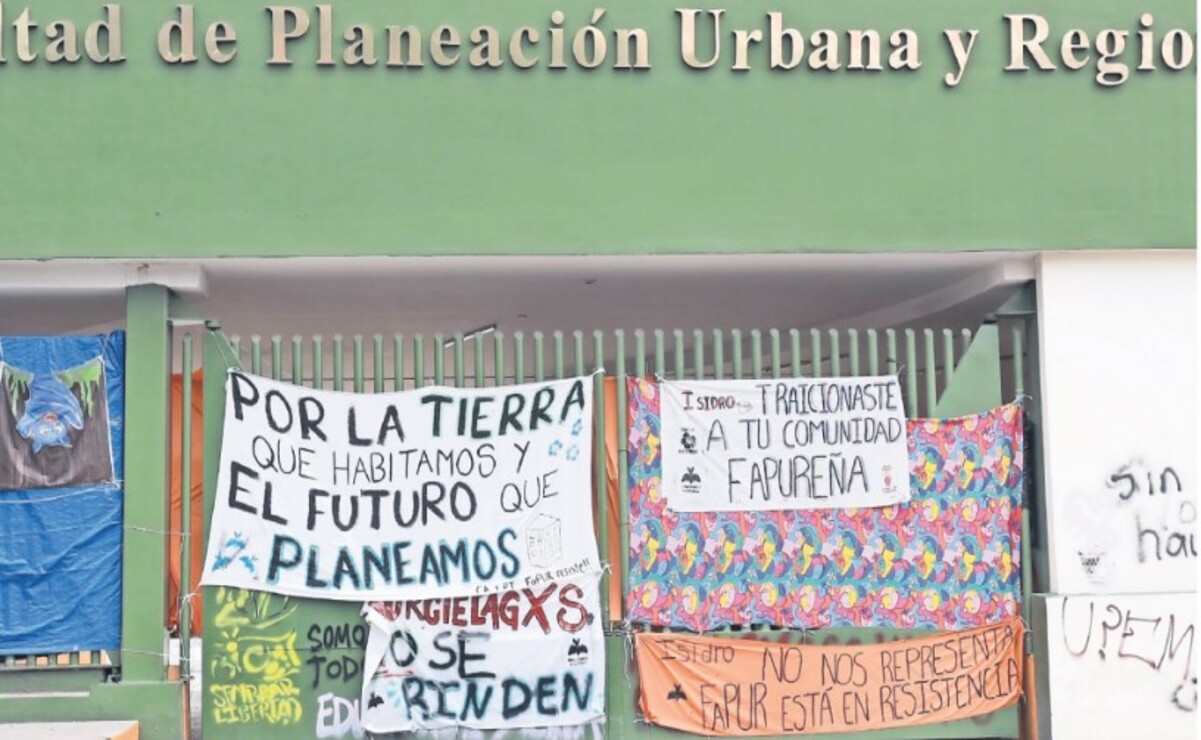 ltad de Planeación Urbana y Regio
POR LA TIERRA
QUE HABITAMOS Y
EL FUTURO QUE
PLANEAMOS
FaPUR resiste!!
URCIELAGXS
O SE
RINDEN
ISIDRO TRAICIONASTE
A TU COMUNIDAD
FAPUREÑA
Isidro NO NOS REPRESENTA
FAPUR ESTÁ EN RESISTENCIA
SOMO
TOD
SEMBRAR
LIBERTAD
EDU
Sin
hai